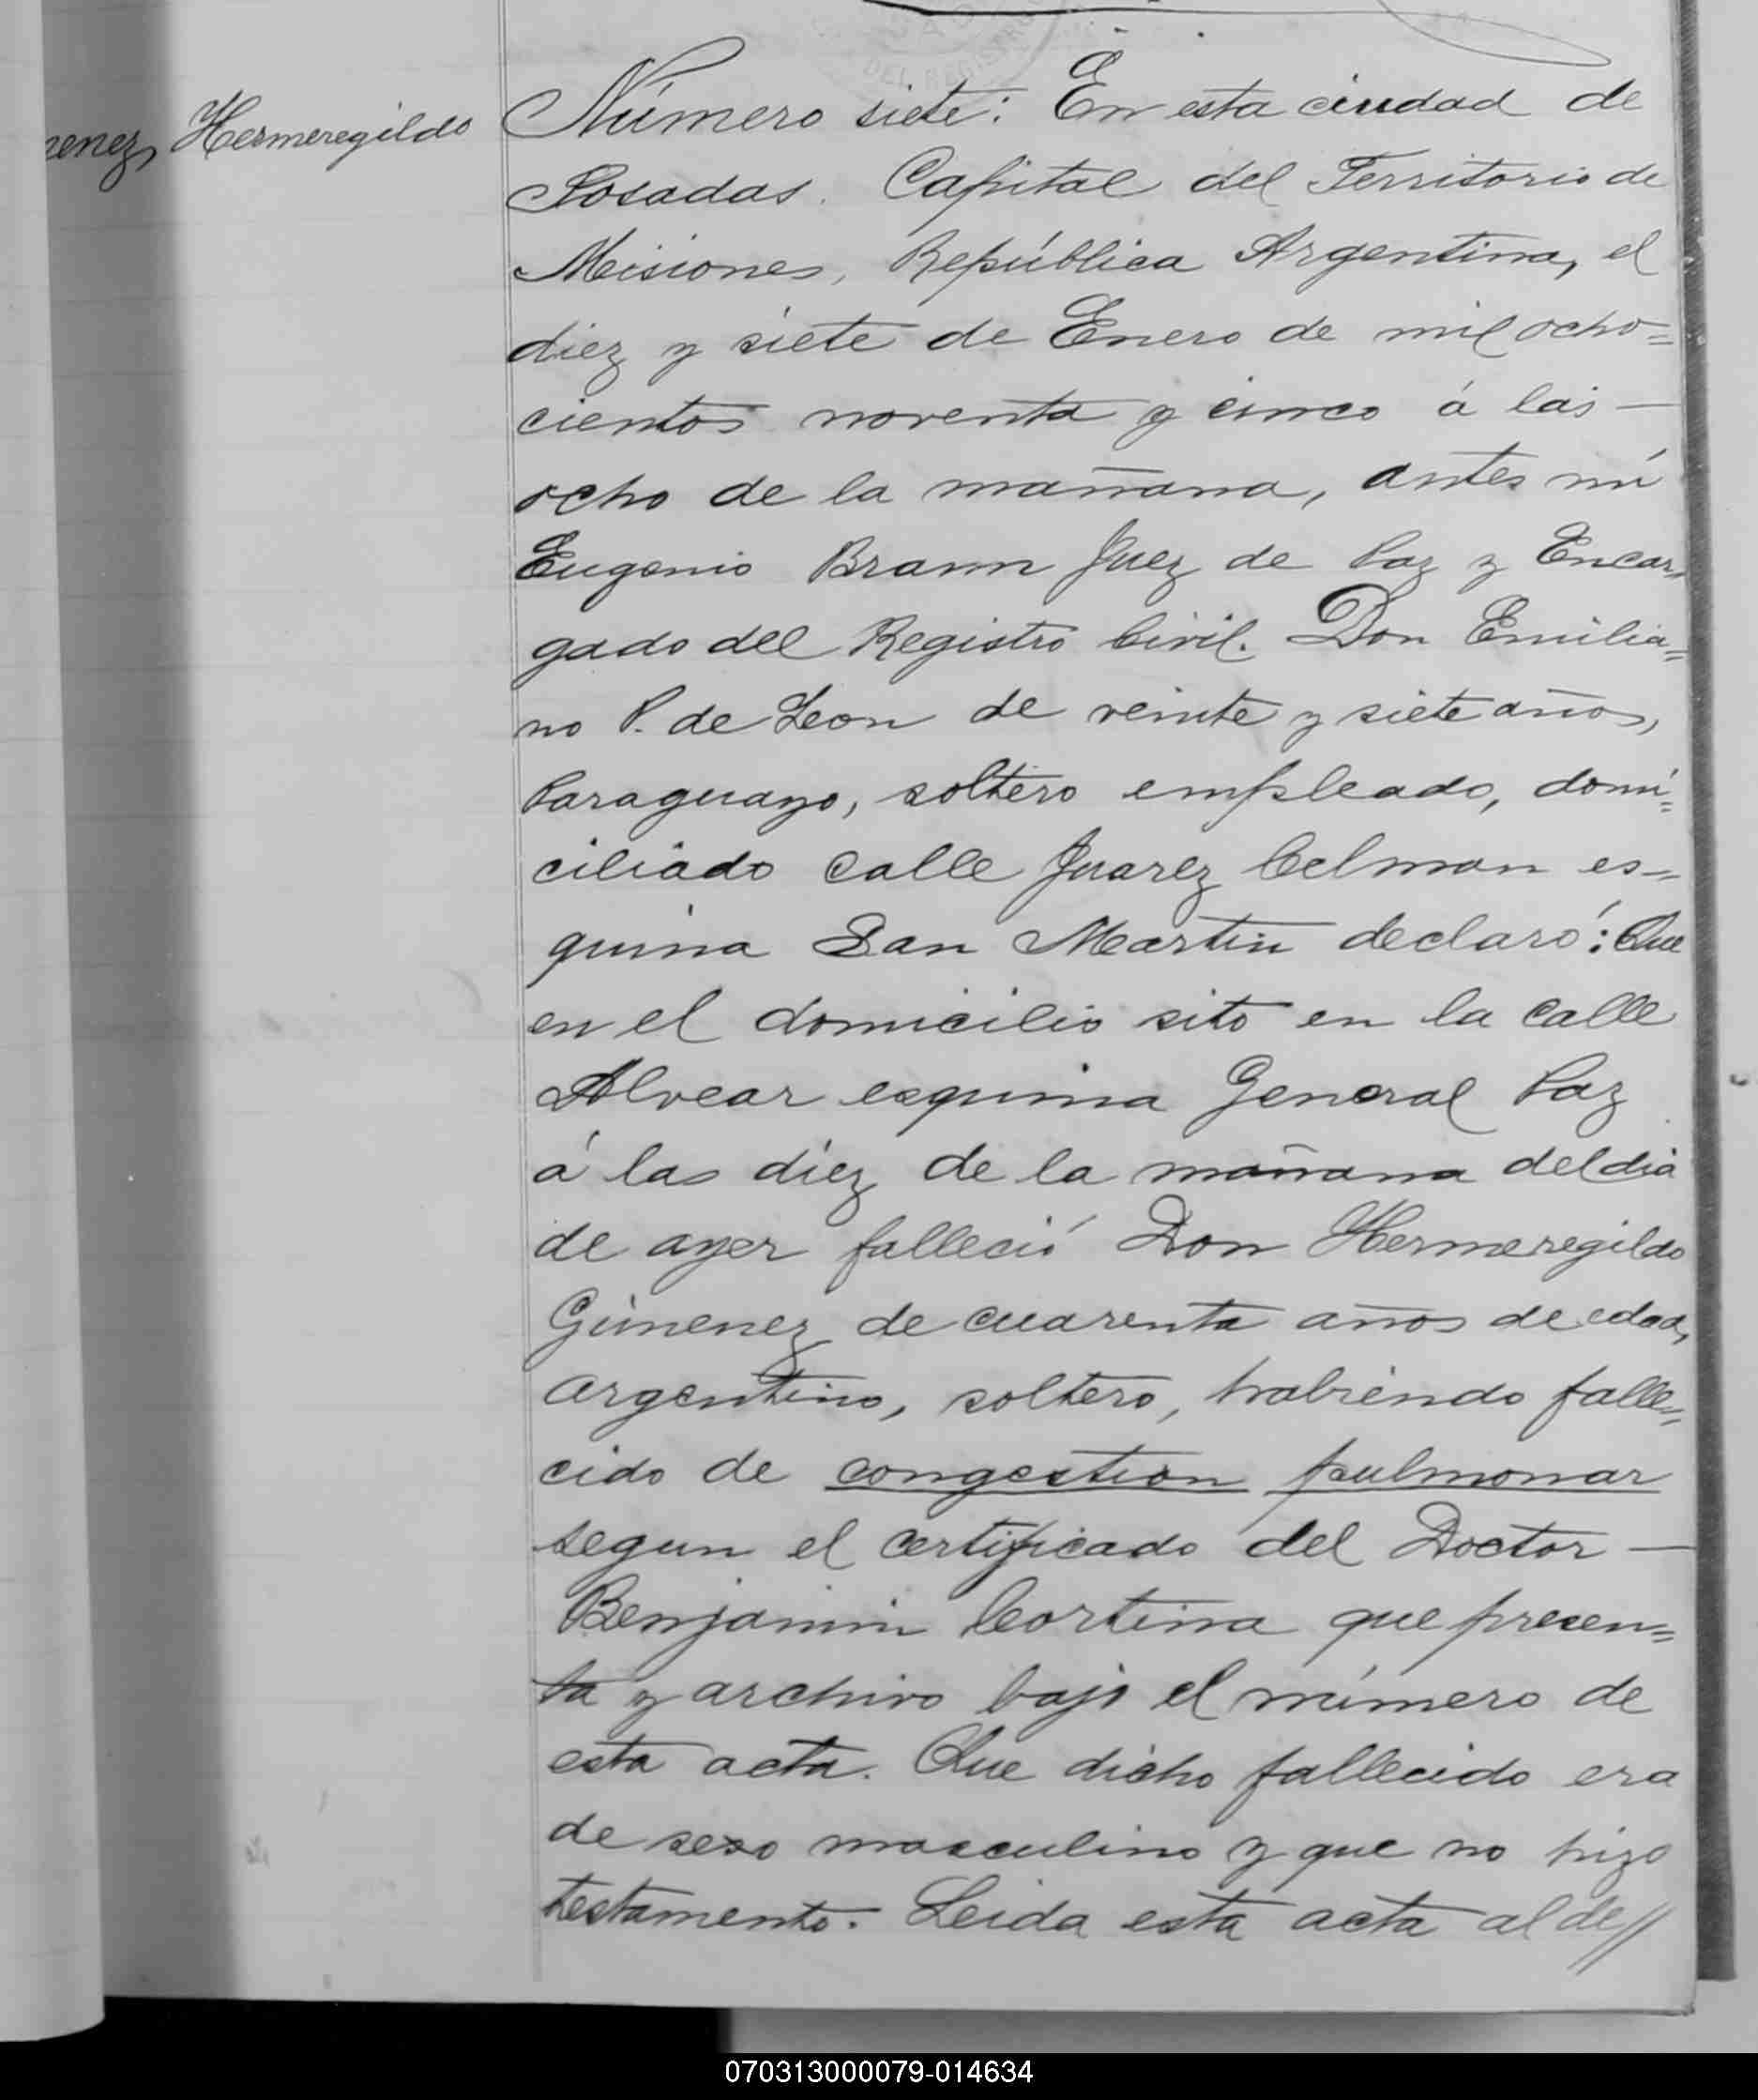 DEL REGISTRO
enez, Hermeregildo
Número siete: En esta ciudad de
Posadas. Capital del Territorio de
Misiones, República Argentina, el
diez y siete de Enero de mil ocho=
cientos noventa y cinco á las —
ocho de la mañana, antes mí
Eugenio Braun Juez de Paz y Encar,
gado del Registro Civil. Don Emilia=
no P. de Leon de veinte y siete años,
Paraguayo, soltero empleado, domi=
ciliado calle Juarez Celman es=
quina San Martin declaró: Que
en el domicilio sito en la calle
Alvear esquina General Paz
á las diez de la mañana del dia
de ayer falleció Don Hermeregildo
Gimenez de cuarenta años de edad,
argentino, soltero, habiendo falle=
cido de congestion pulmonar
segun el certificado del Doctor —
Benjamin Cortina que presen=
ta y archivo bajo el número de
esta acta. Que dicho fallecido era
de sexo masculino y que no hizo
testamento. Leida esta acta al de//
070313000079-014634